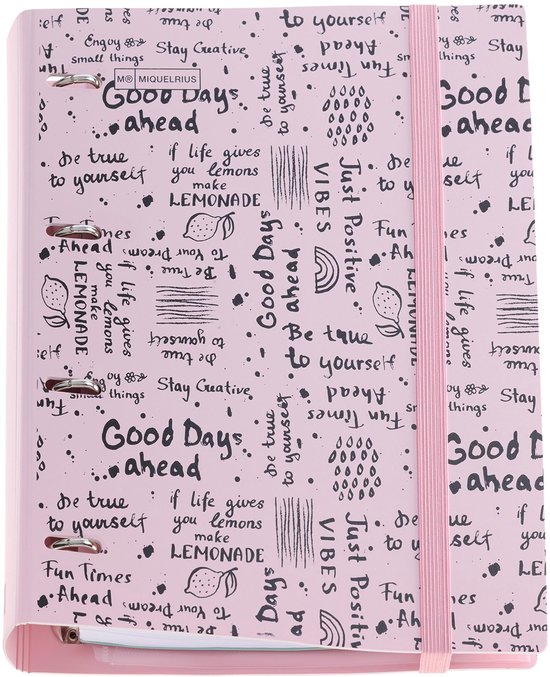 Be true
to yourself
Enjoy
small things
Stay Creative
Ahead
Fun Times
be true
to yourself
M® MIQUELRIUS
Good Days
ahead
Good D
ahead
be true
to yourself
if life gives
you lemons
make
LEMONADE
Just Positive
VIBES
Fun Times
Ahead
Be True
to Your Dreams
Good Days
ahead
Fun Tim
Ahead
if life gives
you lemons
make
LEMONADE
be true
to yourself
Be true
to yourself
Enjoy
small things
Stay Creative
Ahead
Fun Times
be true
to yourself
Good Days
ahead
Good D
ahead
be true
to yourself
if life gives
you lemons
make
LEMONADE
Just Positive
VIBES
Fun Times
Ahead
to Your Dreams
Good Days
ahead
Fun Tim
Ahead